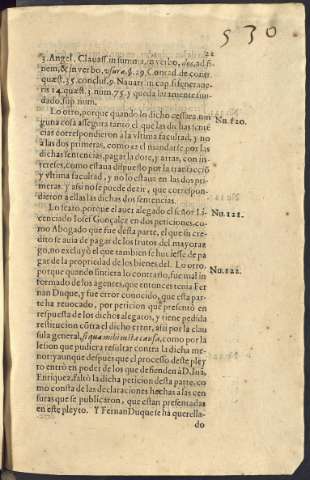 530
22
3. Angel. Clavas. in summa, in verbo, dos, ad fi-
nem, & in verbo, usura, §. 29. Conrad. de contr.
quæst. 35. conclus. 9. Navarr. in cap. si fœnerato-
ris 14. quæst. 3. num. 75. y queda latamente fun-
dado, sup. num.
Lo otro, porque quando lo dicho cessara, nin
Nu. 120.
guna cosa assegura tanto el que las dichas senten
cias correspondieron à la vltima facultad, y no
à las dos primeras, como es el mandarse por las
dichas sentencias, pagar la dote, y arras, con in-
tereses, como estaua dispuesto por la transacciõ
y vltima facultad, y no lo estaua en las dos pri-
meras. y assi no se puede dezir, que correspon-
dieron à ellas las dichas dos sentencias.
Lo sexto, porque el auer alegado el señor Li-
Nu. 121.
cenciado Iosef Gonçalez en dos peticiones, co-
mo Abogado que fue desta parte, el que su cre-
dito se auia de pagar de los frutos del mayoraz
go, no excluyò el que tambien se huuiesse de pa
gar de la propriedad de los bienes del. Lo otro,
porque quando sintiera lo contrario, fue mal in
Nu. 122.
formado de los agentes, que entonces tenia Fer
nan Duque, y fue error conocido, que esta par-
te ha reuocado, por peticion que presentò en
respuesta de los dichos alegatos, y tiene pedida
restitucion cõtra el dicho error, assi por la clau
sula general, si qua mihi iusta causa, como por la
lesion que pudiera resultar contra la dicha me-
nor: y aunque despues que el processo deste pley
to entrò en poder de los que defienden à D. Iuã
Enriquez, faltò la dicha peticion desta parte, co
mo consta de las declaraciones hechas a las cen
suras que se publicaron, que estan presentadas
en este pleyto. Y Fernan Duque se ha querella-
do